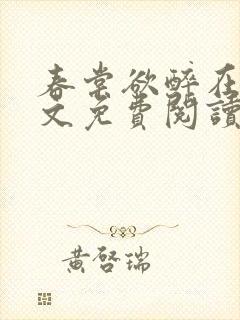 春棠欲醉在
文免費閱讀
黃啓瑞